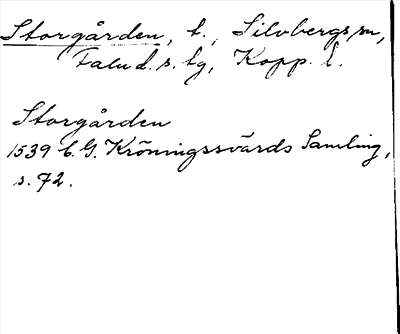 Storgården, t., Silvbergs sn,
Falu d. s. tg, Kopp. l.
Storgården
1539 C. G. Kröningssvärds Samling,
s. 72.